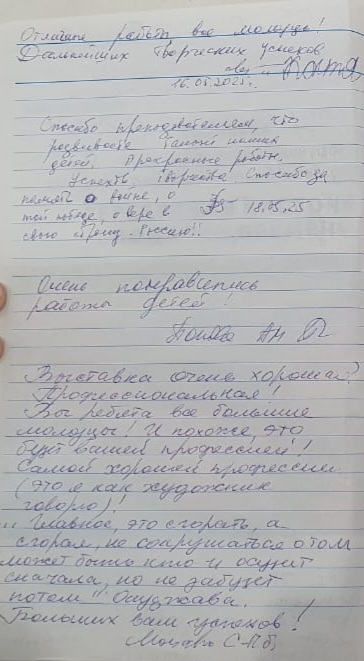 Отличные работы, все молодцы!
Дальнейших творческих успехов
16.05.2025г.
Спасибо преподавателям, что
развиваете талант наших
детей. Прекрасные работы.
Успехов, творчества. Спасибо за
память о войне, о
той победе, о вере в 18.05.25
свою Россию!!
Очень понравились
работы детей!
Выставка очень хорошая!
Профессиональная!
Вы ребята все большие
молодцы! И похоже, это
будет вашей профессией!
Самой хорошей профессией
(это я как художник
говорю)!
"Главное, это сгорать, а
сгорая, не сокрушаться о том
может быть кто и осудит
сначала, но не забудет
потом" Окуджава.
Больших вам успехов!
С-Пб,